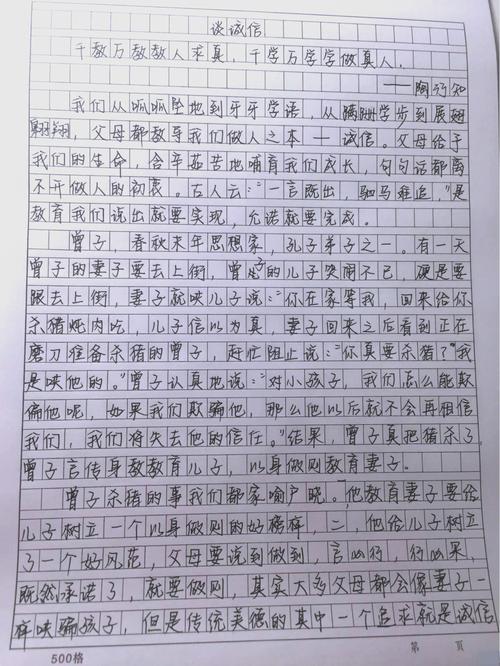 谈诚信
千教万教教人求真，千学万学学做真人。
——陶行知
我们从呱呱坠地到牙牙学语，从蹒跚学步到展翅
翱翔，父母都教导我们做人之本—诚信。父母给予
我们的生命，含辛茹苦地哺育我们成长，句句话都离
不开做人的初衷。古人云：“一言既出，驷马难追，”是
教育我们说出就要实现，允诺就要完成。
曾子，春秋末年思想家，孔子弟子之一。有一天
曾子的妻子要去上街，曾子的儿子哭闹不已，硬是要
跟去上街，妻子就哄儿子说：“你在家等我，回来给你
杀猪炖肉吃，儿子信以为真，妻子回来之后看到正在
磨刀准备杀猪的曾子，赶忙阻止说：“你真要杀猪？”我
是哄他的。”曾子认真地说：“对小孩子，我们怎么能欺
骗他呢，如果我们欺骗他，那么他以后就不会再相信
我们，我们将失去他的信任。”结果，曾子真把猪杀了
曾子言传身教教育儿子，以身做则教育妻子。
曾子杀猪的事我们都家喻户晓。他教育妻子要给
儿子树立一个以身做则的好榜样，二，他给儿子树立
了一个好风范，父母要说到做到，言必行，行必果，
既然承诺了，就要做则，其实大多父母都会像妻子一
样哄骗孩子，但是传统美德的其中一个追求就是诚信
500格
第 页